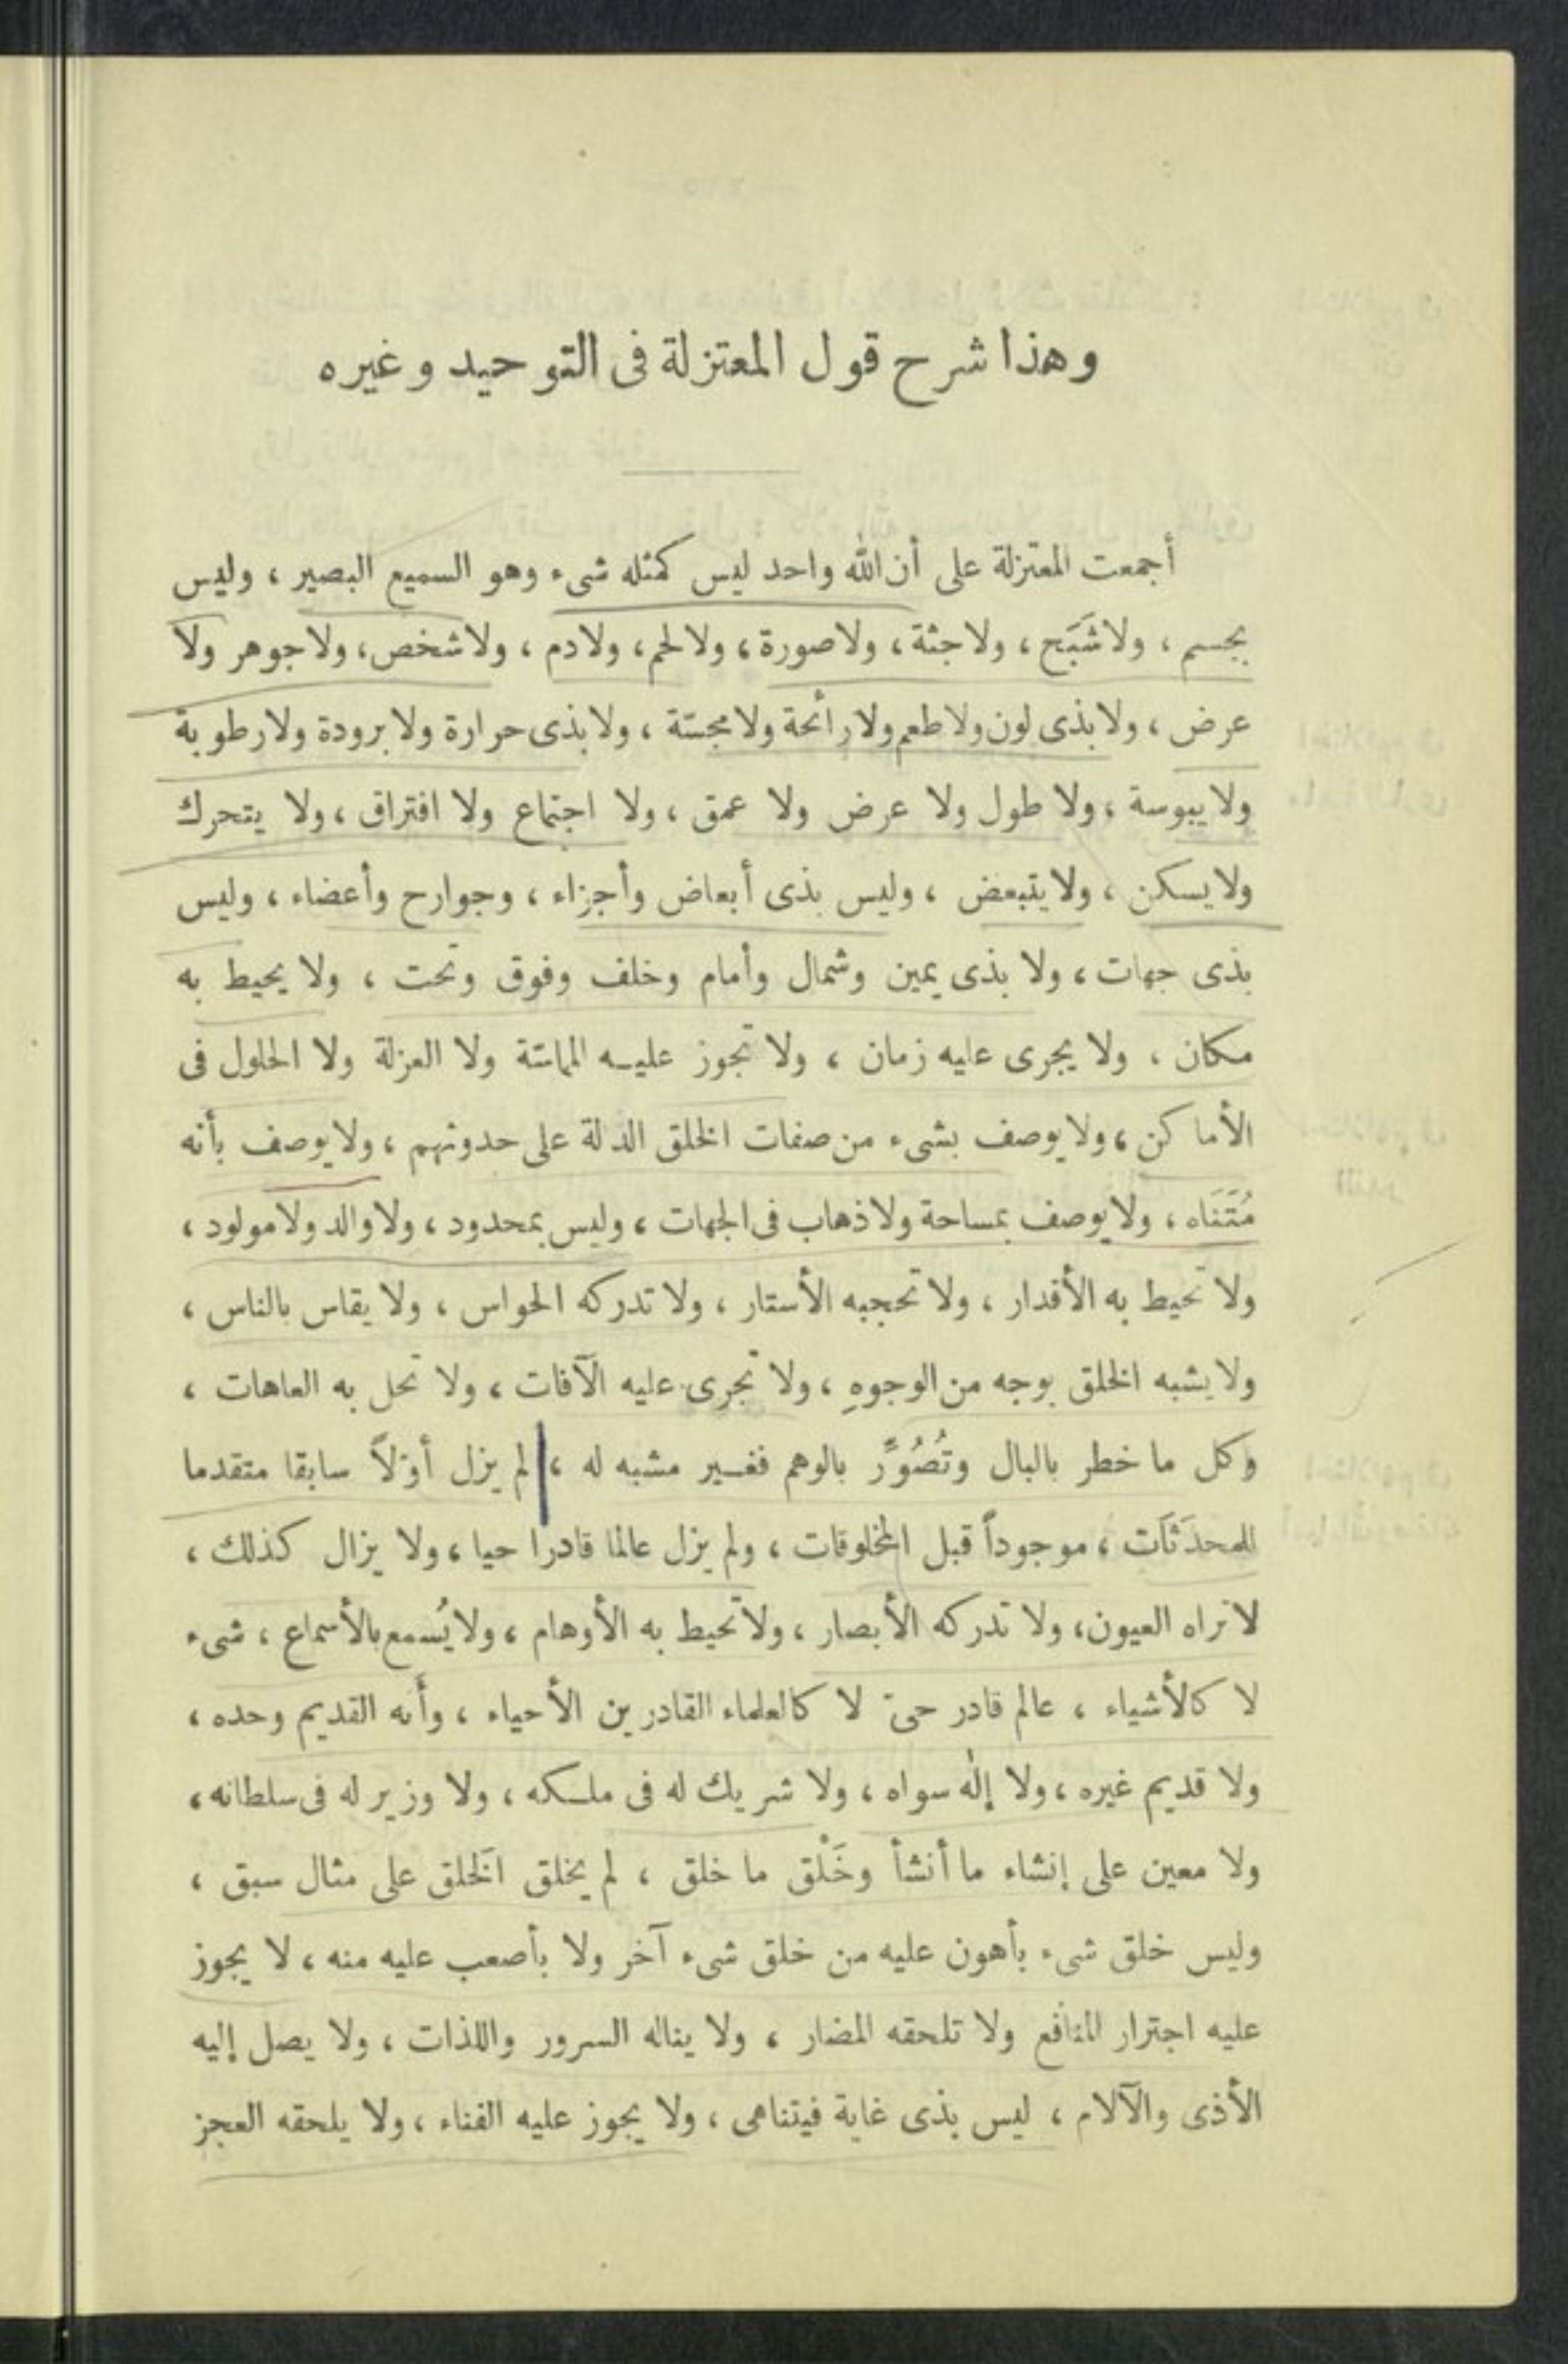 وهذا شرح قول المعتزلة فى التوحيد وغيره
أجمعت المعتزلة على أن الله واحد ليس كمثله شىء وهو السميع البصير ، وليس
بجسم ، ولا شَبَح ، ولا جثة ، ولا صورة ، ولا لحم ، ولا دم ، ولا شخص ، ولا جوهر ولا
عرض ، ولا بذى لون ولا طعم ولا رائحة ولا مجسّة ، ولا بذى حرارة ولا برودة ولا رطوبة
ولا يبوسة ، ولا طول ولا عرض ولا عمق ، ولا اجتماع ولا افتراق ، ولا يتحرك
ولا يسكن ، ولا يتبعض ، وليس بذى أبعاض وأجزاء ، وجوارح وأعضاء ، وليس
بذى جهات ، ولا بذى يمين وشمال وأمام وخلف وفوق وتحت ، ولا يحيط به
مكان ، ولا يجرى عليه زمان ، ولا تجوز عليه المماسّة ولا العزلة ولا الحلول فى
الأماكن ، ولا يوصف بشىء من صفات الخلق الدالة على حدوثهم ، ولا يوصف بأنه
مُتَنَاه ، ولا يوصف بمساحة ولا ذهاب فى الجهات ، وليس بمحدود ، ولا والد ولا مولود ،
ولا تحيط به الأقدار ، ولا تحجبه الأستار ، ولا تدركه الحواس ، ولا يقاس بالناس ،
ولا يشبه الخلق بوجه من الوجوهِ ، ولا تجرى عليه الآفات ، ولا تحل به العاهات ،
وكل ما خطر بالبال وتُصُوِّر بالوهم فغير مشبه له ، لم يزل أوّلاً سابقا متقدما
للمحدَثَات ، موجوداً قبل المخلوقات ، ولم يزل عالما قادرا حيا ، ولا يزال كذلك ،
لا تراه العيون ، ولا تدركه الأبصار ، ولا تحيط به الأوهام ، ولا يُسمع بالأسماع ، شىء
لا كالأشياء ، عالم قادر حىّ لا كالعلماء القادرين الأحياء ، وأَنه القديم وحده ،
ولا قديم غيره ، ولا إلٰه سواه ، ولا شريك له فى ملكه ، ولا وزير له فى سلطانه ،
ولا معين على إنشاء ما أنشأ وخَلْق ما خلق ، لم يخلق الخَلق على مثال سبق ،
وليس خلق شىء بأهون عليه من خلق شىء آخر ولا بأصعب عليه منه ، لا يجوز
عليه اجترار المنافع ولا تلحقه المضار ، ولا يناله السرور واللذات ، ولا يصل إليه
الأذى والآلام ، ليس بذى غاية فيتناهى ، ولا يجوز عليه الفناء ، ولا يلحقه العجز